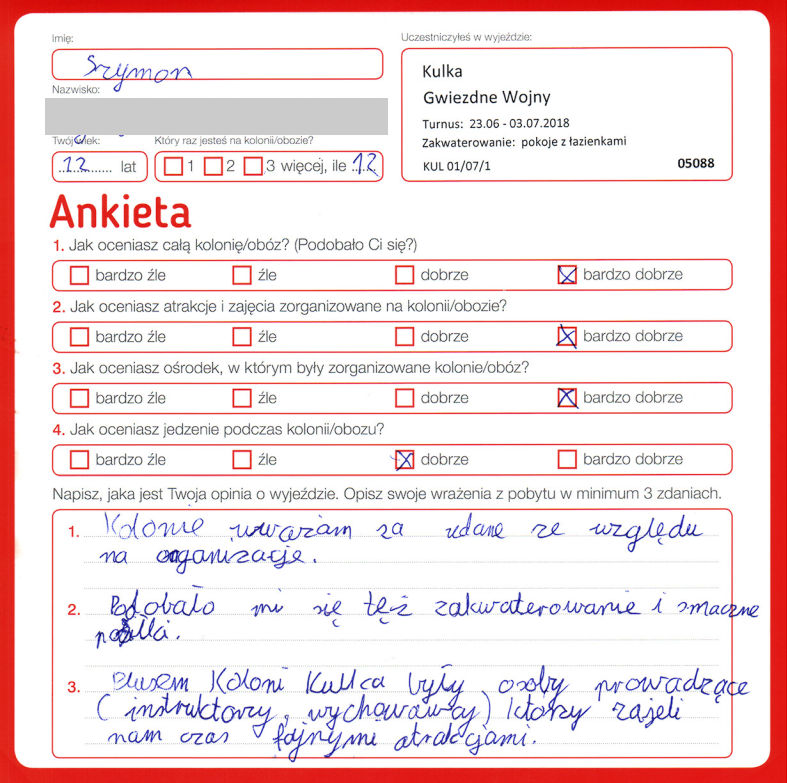 Imię:
Szymon
Nazwisko:
Uczestniczyłeś w wyjeździe:
Kulka
Gwiezdne Wojny
Turnus: 23.06 - 03.07.2018
Zakwaterowanie: pokoje z łazienkami
KUL 01/07/1 05088
Twój wiek:
12 lat
Który raz jesteś na kolonii/obozie?
1 2 3 więcej, ile 12
Ankieta
1. Jak oceniasz całą kolonię/obóz? (Podobało Ci się?)
bardzo źle źle dobrze bardzo dobrze
2. Jak oceniasz atrakcje i zajęcia zorganizowane na kolonii/obozie?
bardzo źle źle dobrze bardzo dobrze
3. Jak oceniasz ośrodek, w którym były zorganizowane kolonie/obóz?
bardzo źle źle dobrze bardzo dobrze
4. Jak oceniasz jedzenie podczas kolonii/obozu?
bardzo źle źle dobrze bardzo dobrze
Napisz, jaka jest Twoja opinia o wyjeździe. Opisz swoje wrażenia z pobytu w minimum 3 zdaniach.
1. Kolonie uwarzam za udane ze względu
na organizacje.
2. Podobało mi się tęż zakwaterowanie i smaczne
3. Plusem Koloni Kulka były osoby prowadzące
(instruktorzy, wychowawcy) którzy zajeli
nam czas fajnymi atrakcjami.